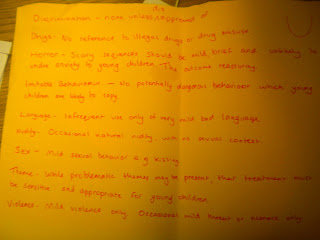 die
Discrimination - none unless disapproved of
Drugs - No reference to illegal drugs or drug misuse
Horror - Scary sequences should be mild, brief and unlikely to
undue anxiety to young children. The outcome reassuring.
Imitable Behaviour - No potentially dangerous behaviour which young
children are likely to copy.
Language - infrequent use only of very mild bad language
nudity - Occasional natural nudity, with no sexual context
Sex - Mild sexual behavior e.g kissing
Theme - While problematic themes may be present, their treatment must
be sensitive and appropriate for young children.
Violence - Mild violence only. Occasional mild threat or menace only.